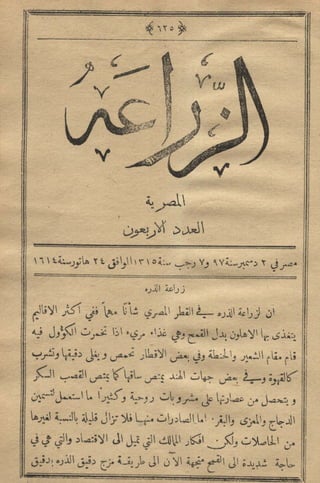 ٦٢٥
الزراعة
المصرية
العدد الاربعون
مصر في ٢ دسمبر سنة ٩٧ و٧ رجب سنة ١٣١٥ الموافق ٢٤ هاتور سنة ١٦١٤
زراعة الذره
ان لزراعة الذره في القطر المصري شأنًا مهمًا ففي اكثر الاقاليم
يتغذى بها الاهلون بدل القمح وهي غذاء مريء اذا تخمرت الكؤول فيه
قام مقام الشعير والحنطة وفي بعض الاقطار تحمص ويغلى دقيقها وتشرب
كالقهوة وفي بعض جهات الهند يمتص ساقها كما يمتص القصب السكر
و يتحصل من عصارتها على مشروبات روحية وكثيرًا ما استعمل لتسمين
الدجاج والمعزى والبقر. اما الصادرات منها فلا تزال قليلة بالنسبة لغيرها
من الحاصلات ولكن افكار الممالك التي تميل الى الاقتصاد والتي هي في
حاجة شديدة الى القمح متجهة الآن الى طريقة مزج دقيق الذره بدقيق